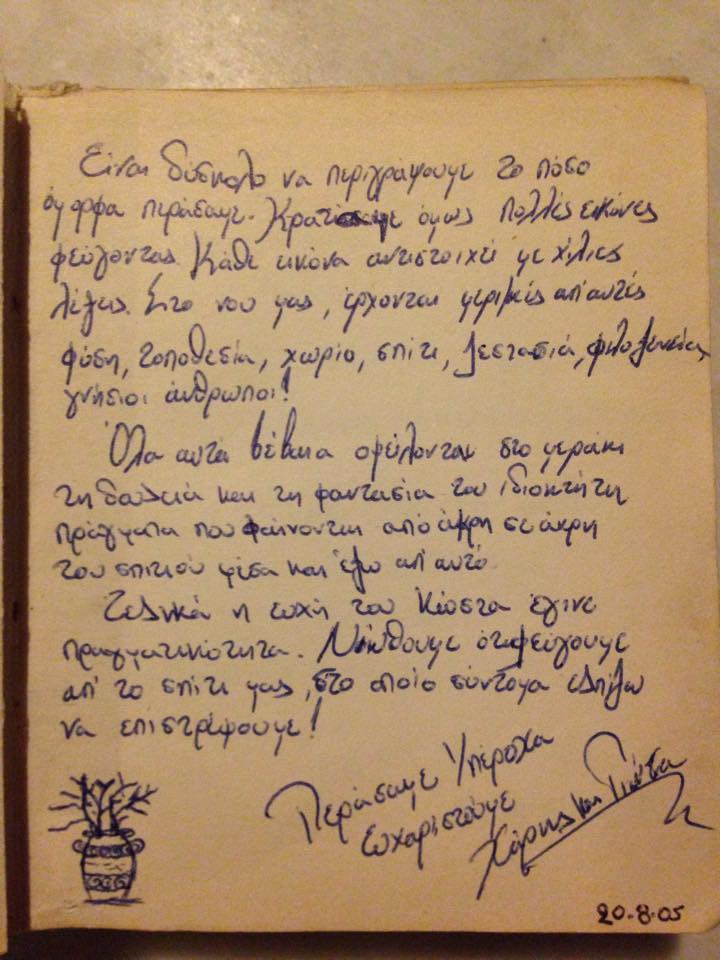 Είναι δύσκολο να περιγράψουμε το πόσο
όμορφα περάσαμε. Κρατάμε όμως πολλές εικόνες
φεύγοντας. Κάθε εικόνα αντιστοιχεί με χίλιες
λέξεις. Στο νου μας, έρχονται μερικές απ' αυτές
φύση, τοποθεσία, χωριό, σπίτι, ζεστασιά, φιλοξενεία,
γνήσιοι άνθρωποι!
Όλα αυτά βέβαια οφείλονται στο μεράκι
τη δουλειά και τη φαντασία του ιδιοκτήτη
πράγματα που φαίνονται από άκρη σε άκρη
του σπιτιού μέσα και έξω απ' αυτό.
Τελικά η ευχή του Κώστα έγινε
πραγματικότητα. Νιώθουμε ότι φεύγουμε
απ' το σπίτι μας, στο οποίο σύντομα ελπίζω
να επιστρέψουμε!
Περάσαμε Υπέροχα
Ευχαριστούμε
Χάρης και
20.8.05